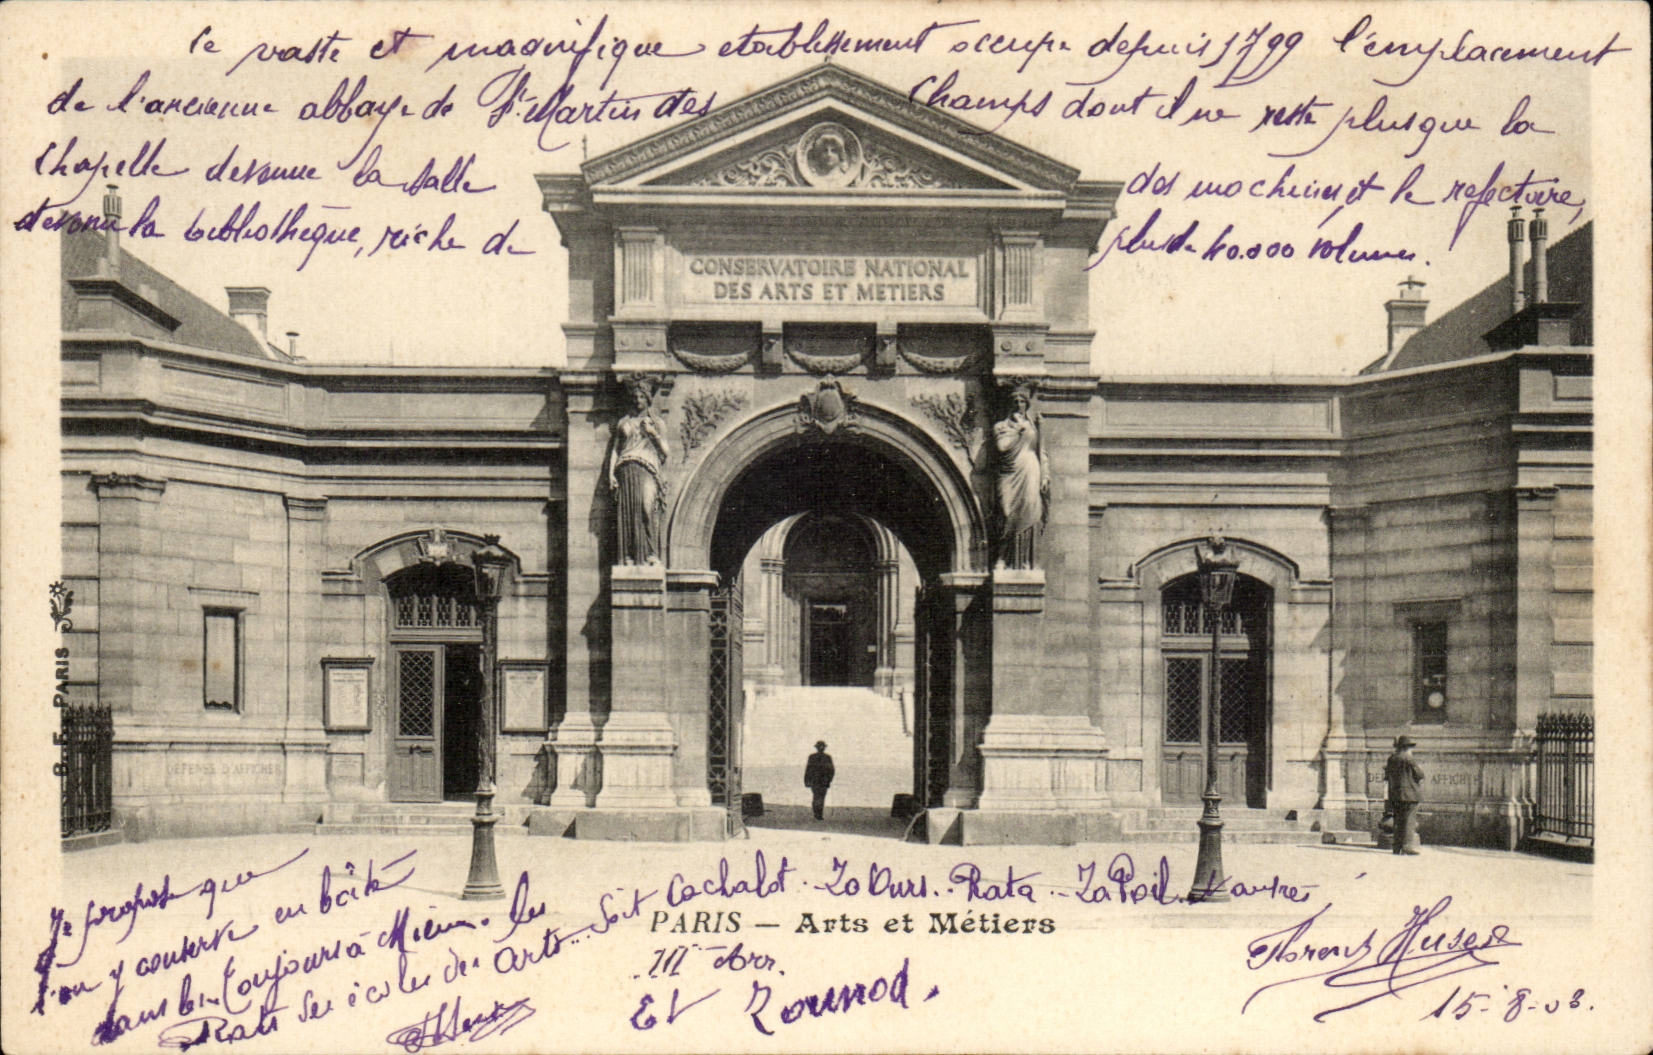 Ce vaste et magnifique etablissement occupe depuis 1799 l'emplacement
de l'ancienne abbaye de St. Martin des Champs dont il ne reste plus que la
Chapelle devenue la salle des machines, et le refectoire,
devenu la bibliothèque, riche de plus de 40.000 volumes.
CONSERVATOIRE NATIONAL
DES ARTS ET METIERS
B. F. PARIS
DEFENSE D'AFFICHER
DEF AFFICHER
Je propose que
l'on y conserve en boîte
dans les Toujours à Mieux. les
Rats des écoles des Arts... Soit Cachalot.. Zo Ours.. Rata.. Za Poil.
PARIS — Arts et Métiers
IIIe Arr.
Et Zounod.
Florent
15-8-03.